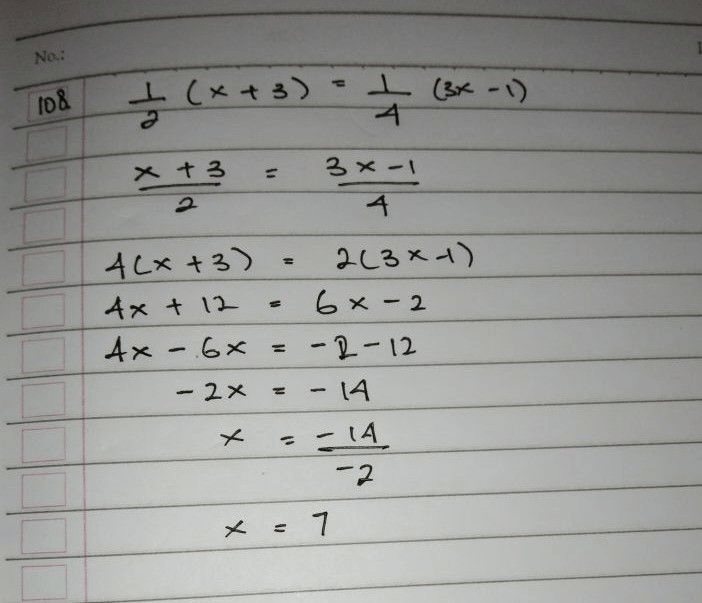 No.:
108 1/2 (x + 3) = 1/4 (3x - 1)
x + 3 / 2 = 3x - 1 / 4
4(x + 3) = 2(3x - 1)
4x + 12 = 6x - 2
4x - 6x = -2 - 12
- 2x = - 14
x = -14 / -2
x = 7